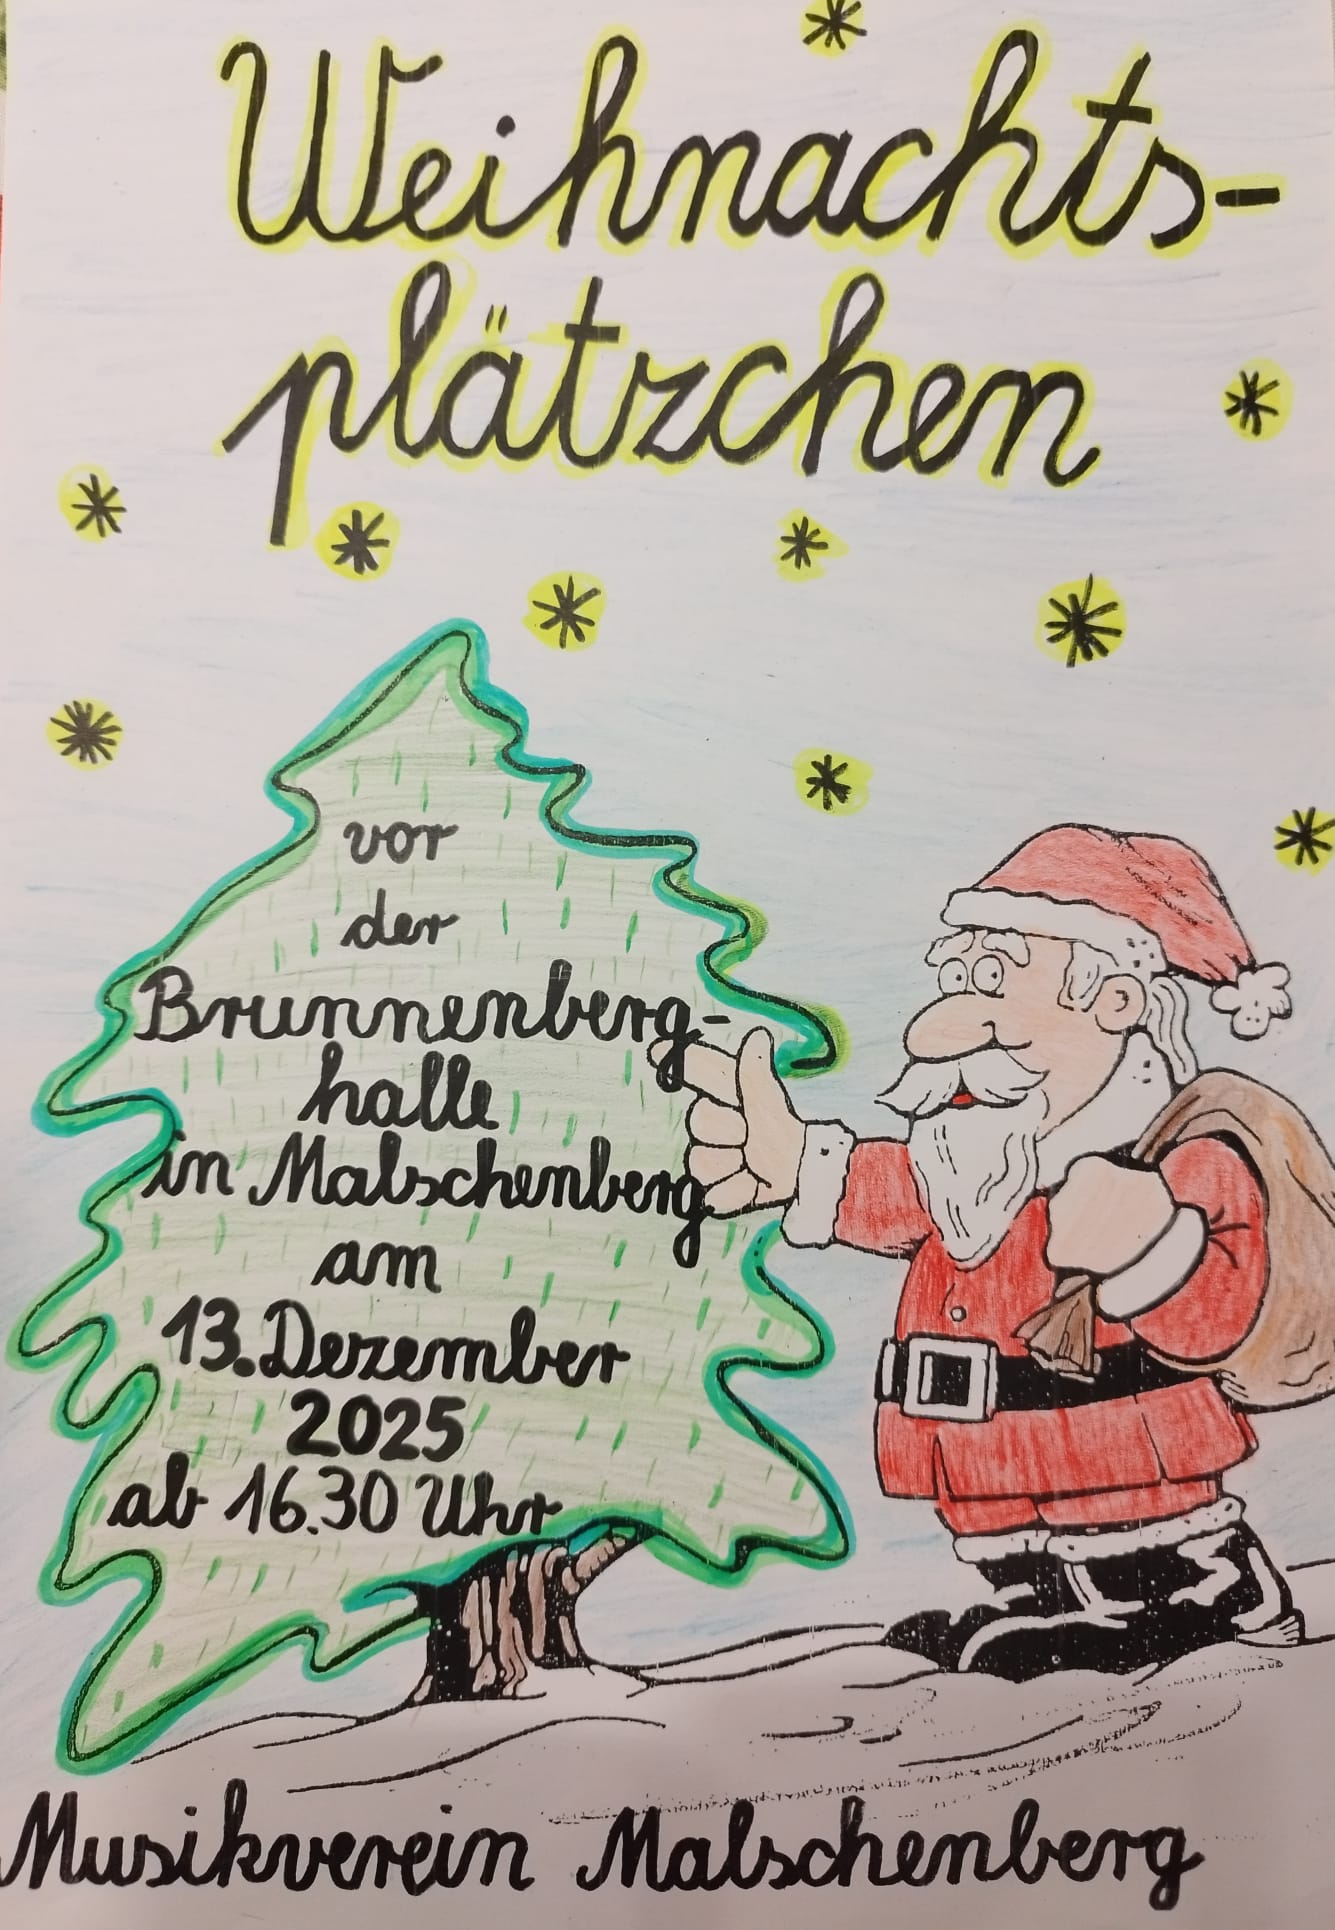 Weihnachts-
plätzchen
vor
der
Brunnenberg-
halle
in Malschenberg
am
13. Dezember
2025
ab 16.30 Uhr
Musikverein Malschenberg